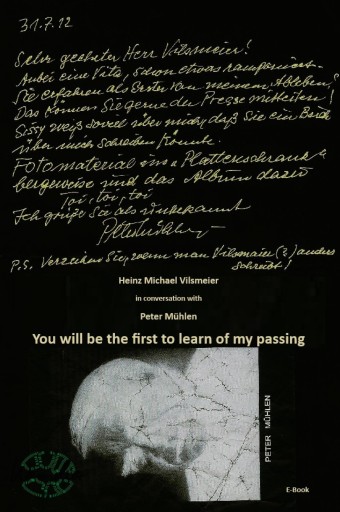 31.7.12
Sehr geehrter Herr Vilsmeier!
Anbei eine Vita, schon etwas ramponiert.
Sie erfahren als Erster von meinem Ableben,
Das können Sie gerne der Presse mitteilen!
Sissy weiß soviel über mich, daß Sie ein Buch
über mich schreiben könnte.
Fotomaterial im "Plattenschrank"
bergeweise und das Album dazu
Toi, toi, toi
Ich grüße Sie als Unbekannt
P.S. Verzeihen Sie, wenn man Vilsmaier(?) anders
schreibt!
Heinz Michael Vilsmeier
in conversation with
Peter Mühlen
You will be the first to learn of my passing
PETER MÜHLEN
E-Book